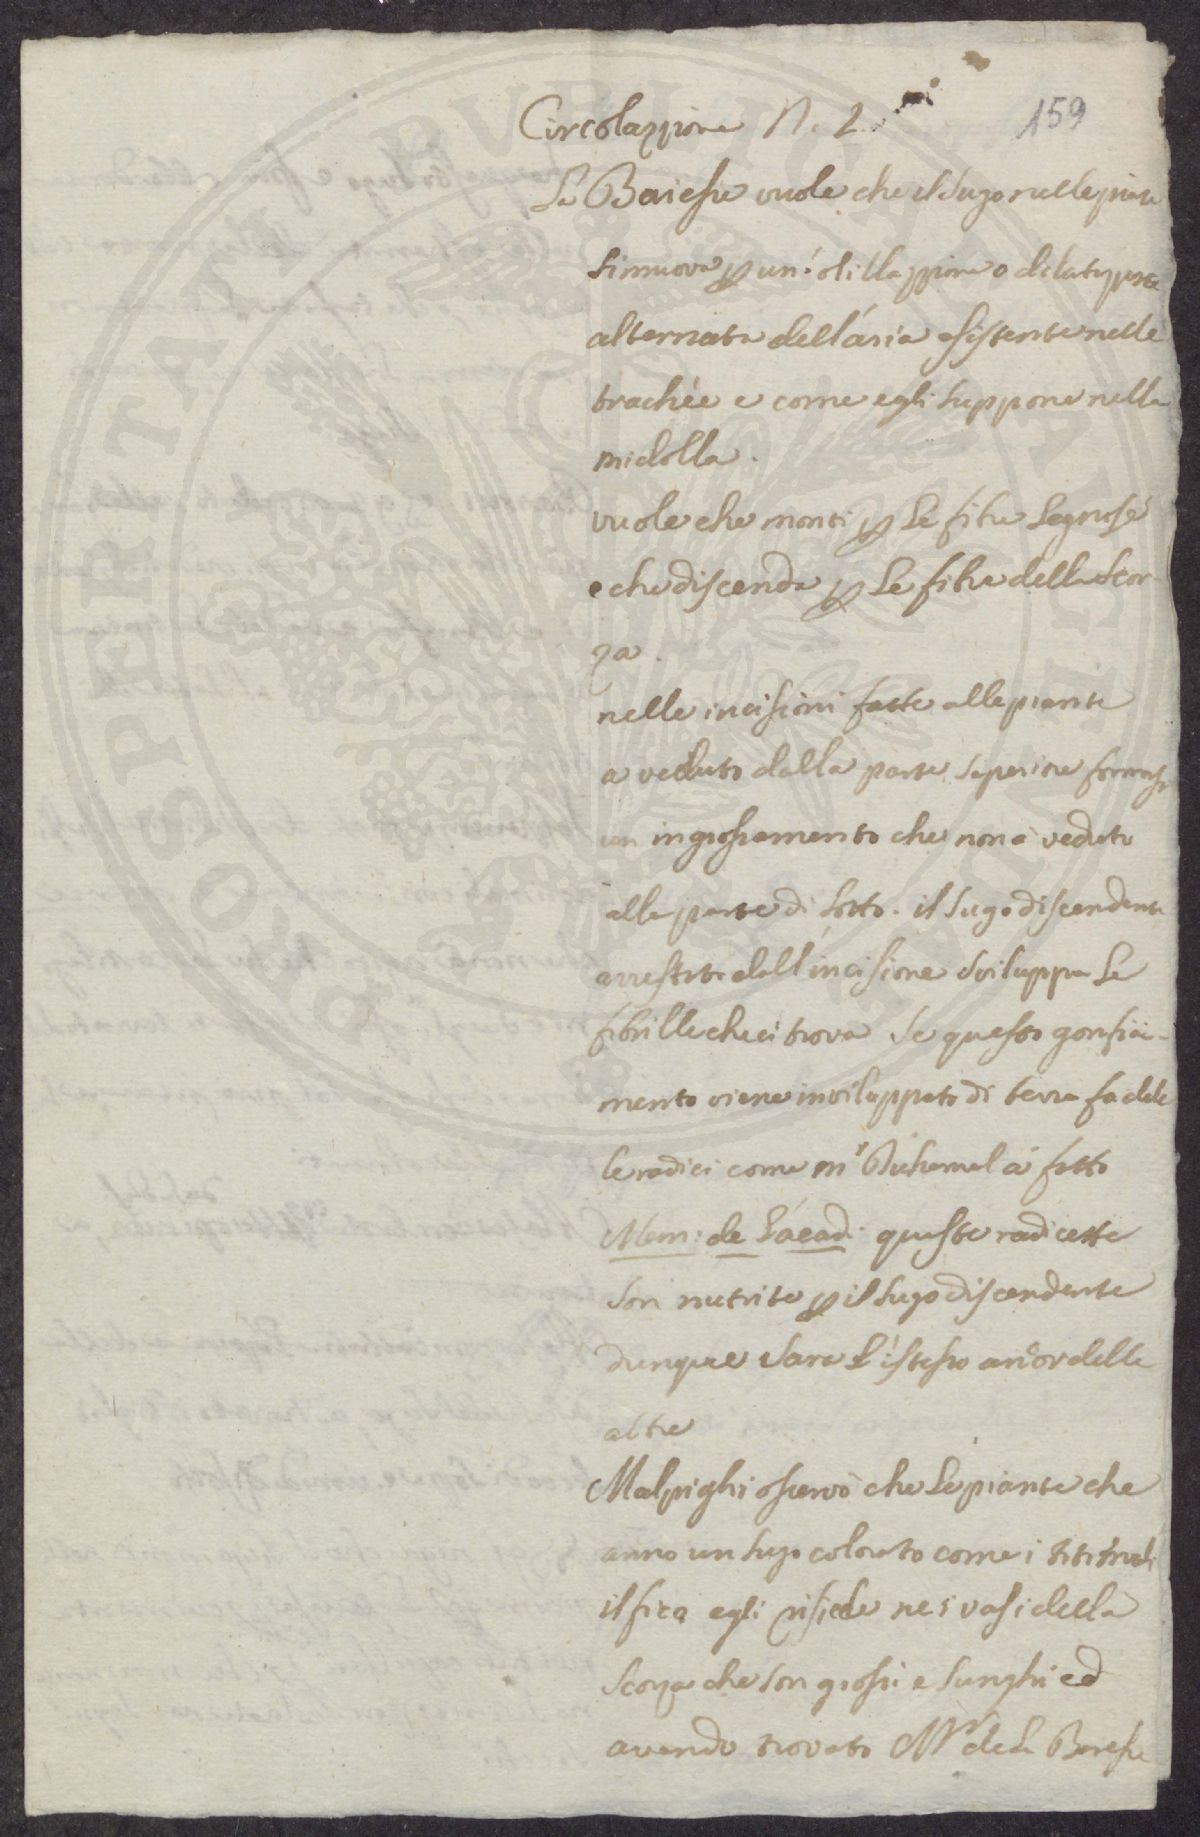 159
Circolazzione N. 2.
La Baiesse vuole che il sugo nelle piante
si muova per un' ossillazzione o dilatazzione
alternata dell'ária esistente nelle
trachée e come egli suppone nella
midolla.
vuole che monti per le fibre legnose
e che discenda per le fibre della scor-
za.
nelle incisioni fatte alle piante
a veduto dalla parte superiore formarsi
un ingrossamento che non a veduto
alla parte di sotto. il sugo discendente
arrestato dall'incisione sviluppa le
fibrille che ci trova se questo gonfia-
mento viene inviluppato di terra fa delle
le radici come mr Duhamel á fatto
Mem: de l'acad: queste radicette
son nutrite per il sugo discendente
dunque sara l'istesso ancor delle
altre
Malpighi osservò che le piante che
anno un sugo colorato come i titimali
il fico egli risiede nei vasi della
scorza che son grossi e lunghi ed
avendo trovato Mr de la Baresse
PROSPERITATI PUBLICAE